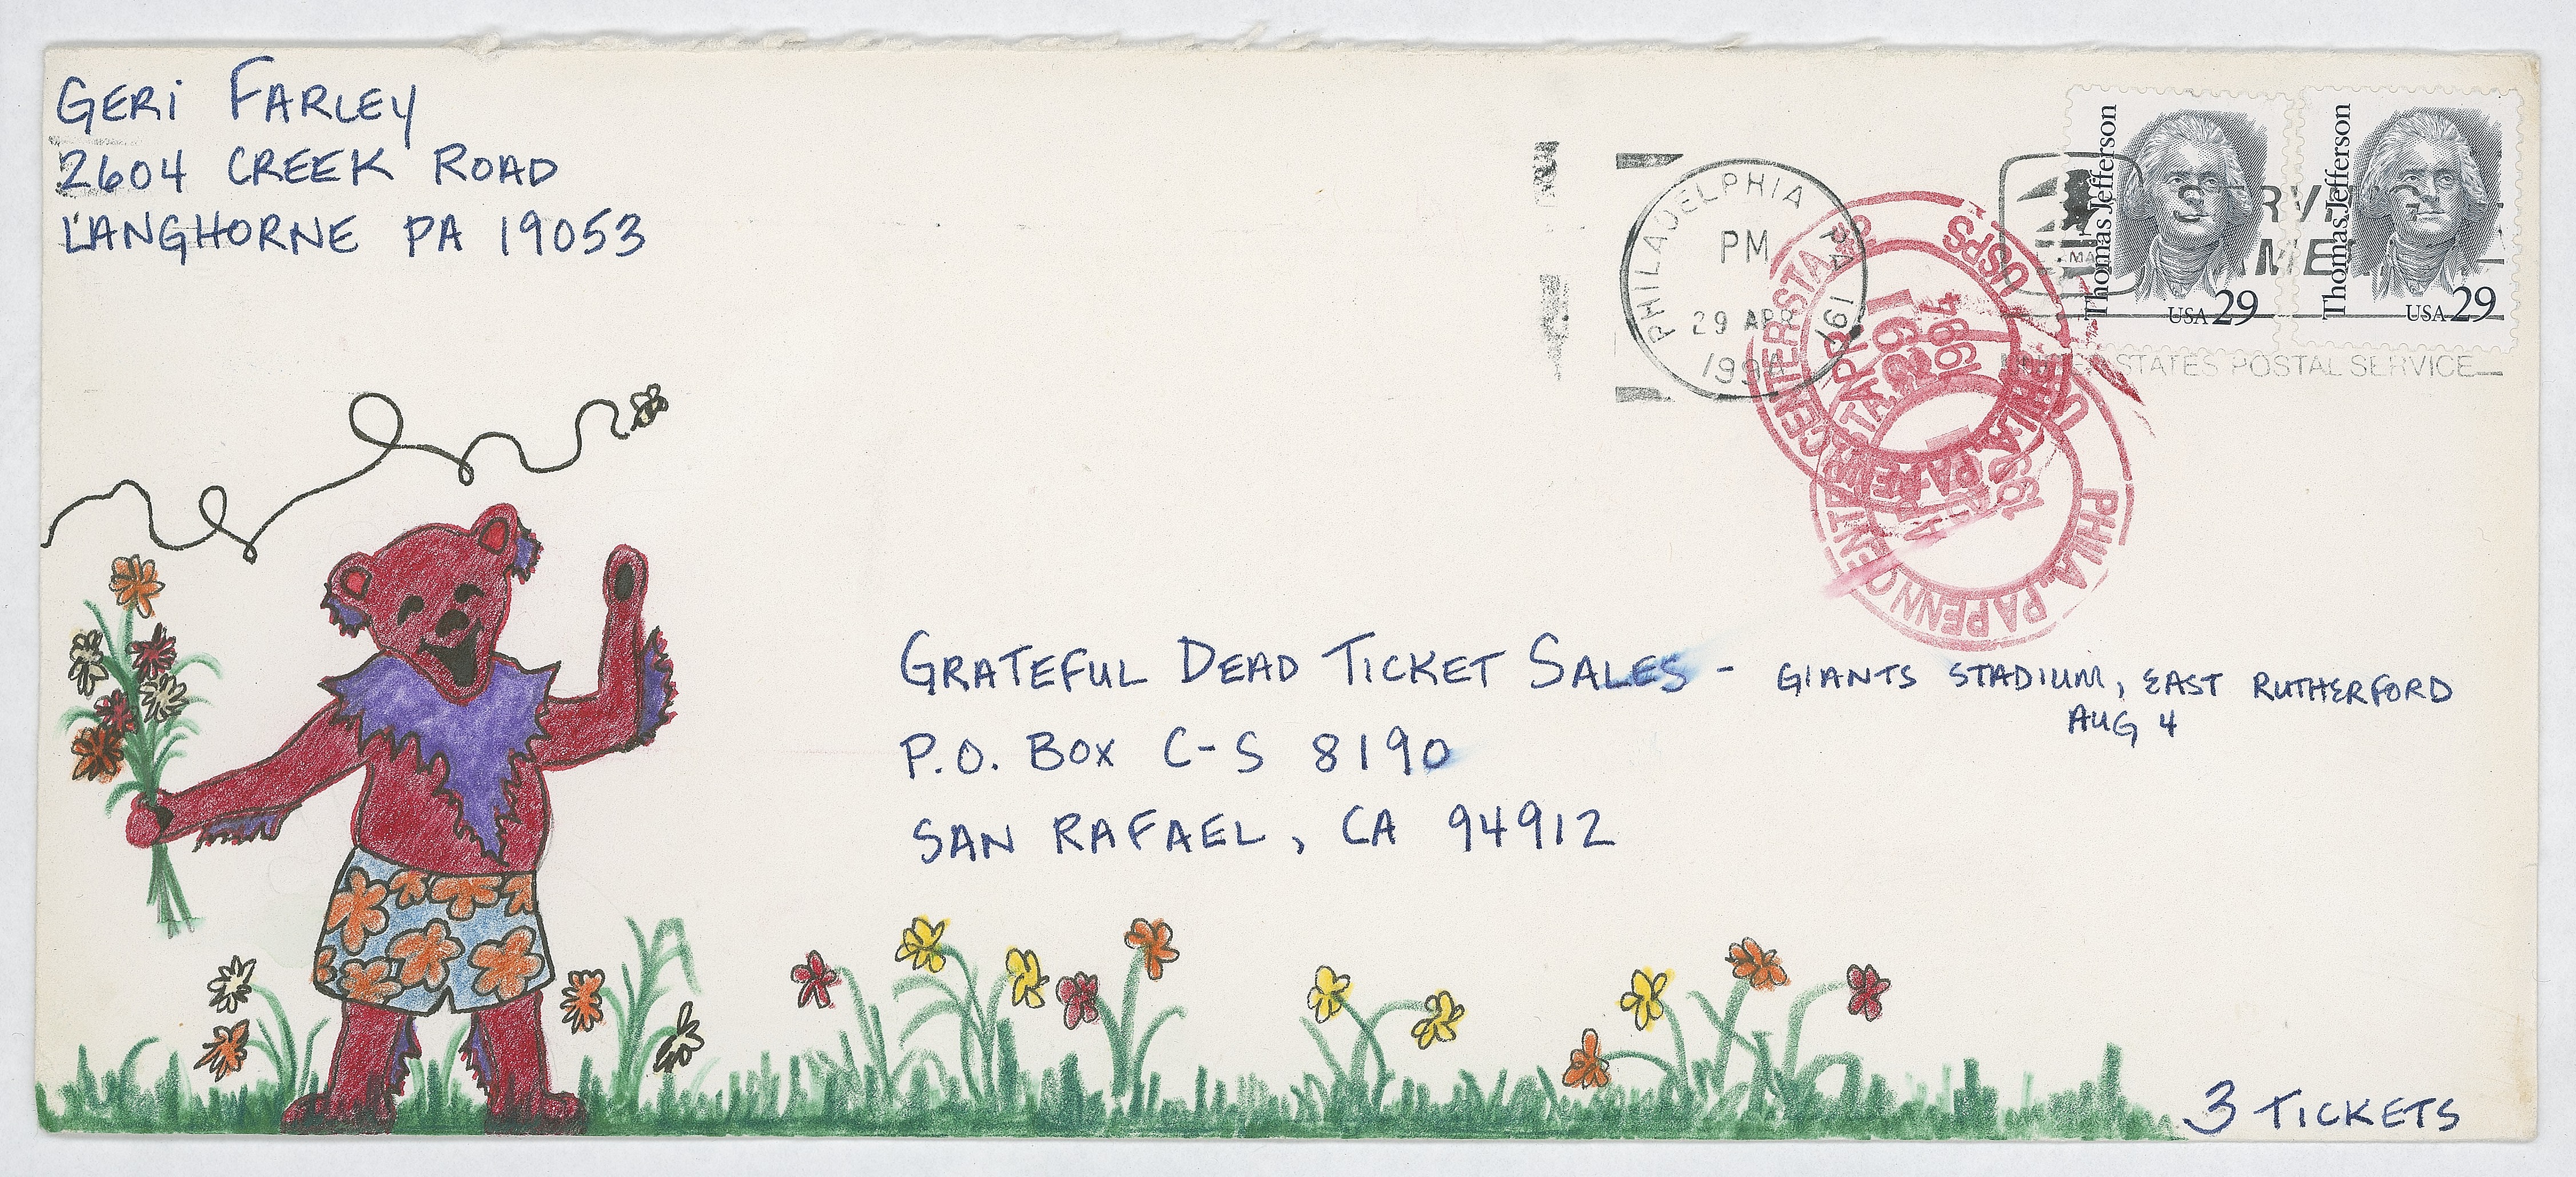 GERI FARLEY
2604 CREEK ROAD
LANGHORNE PA 19053
PHILADELPHIA PA 191
PM
29 APR
1994
USPS
PHILA. PA PENN CENTER STA.
APR
29
1994
PHILA. PA PENN CENTER
Thomas Jefferson
USA 29
Thomas Jefferson
USA 29
UNITED STATES POSTAL SERVICE
GRATEFUL DEAD TICKET SALES - GIANTS STADIUM, EAST RUTHERFORD
AUG 4
P.O. BOX C-S 8190
SAN RAFAEL, CA 94912
3 TICKETS